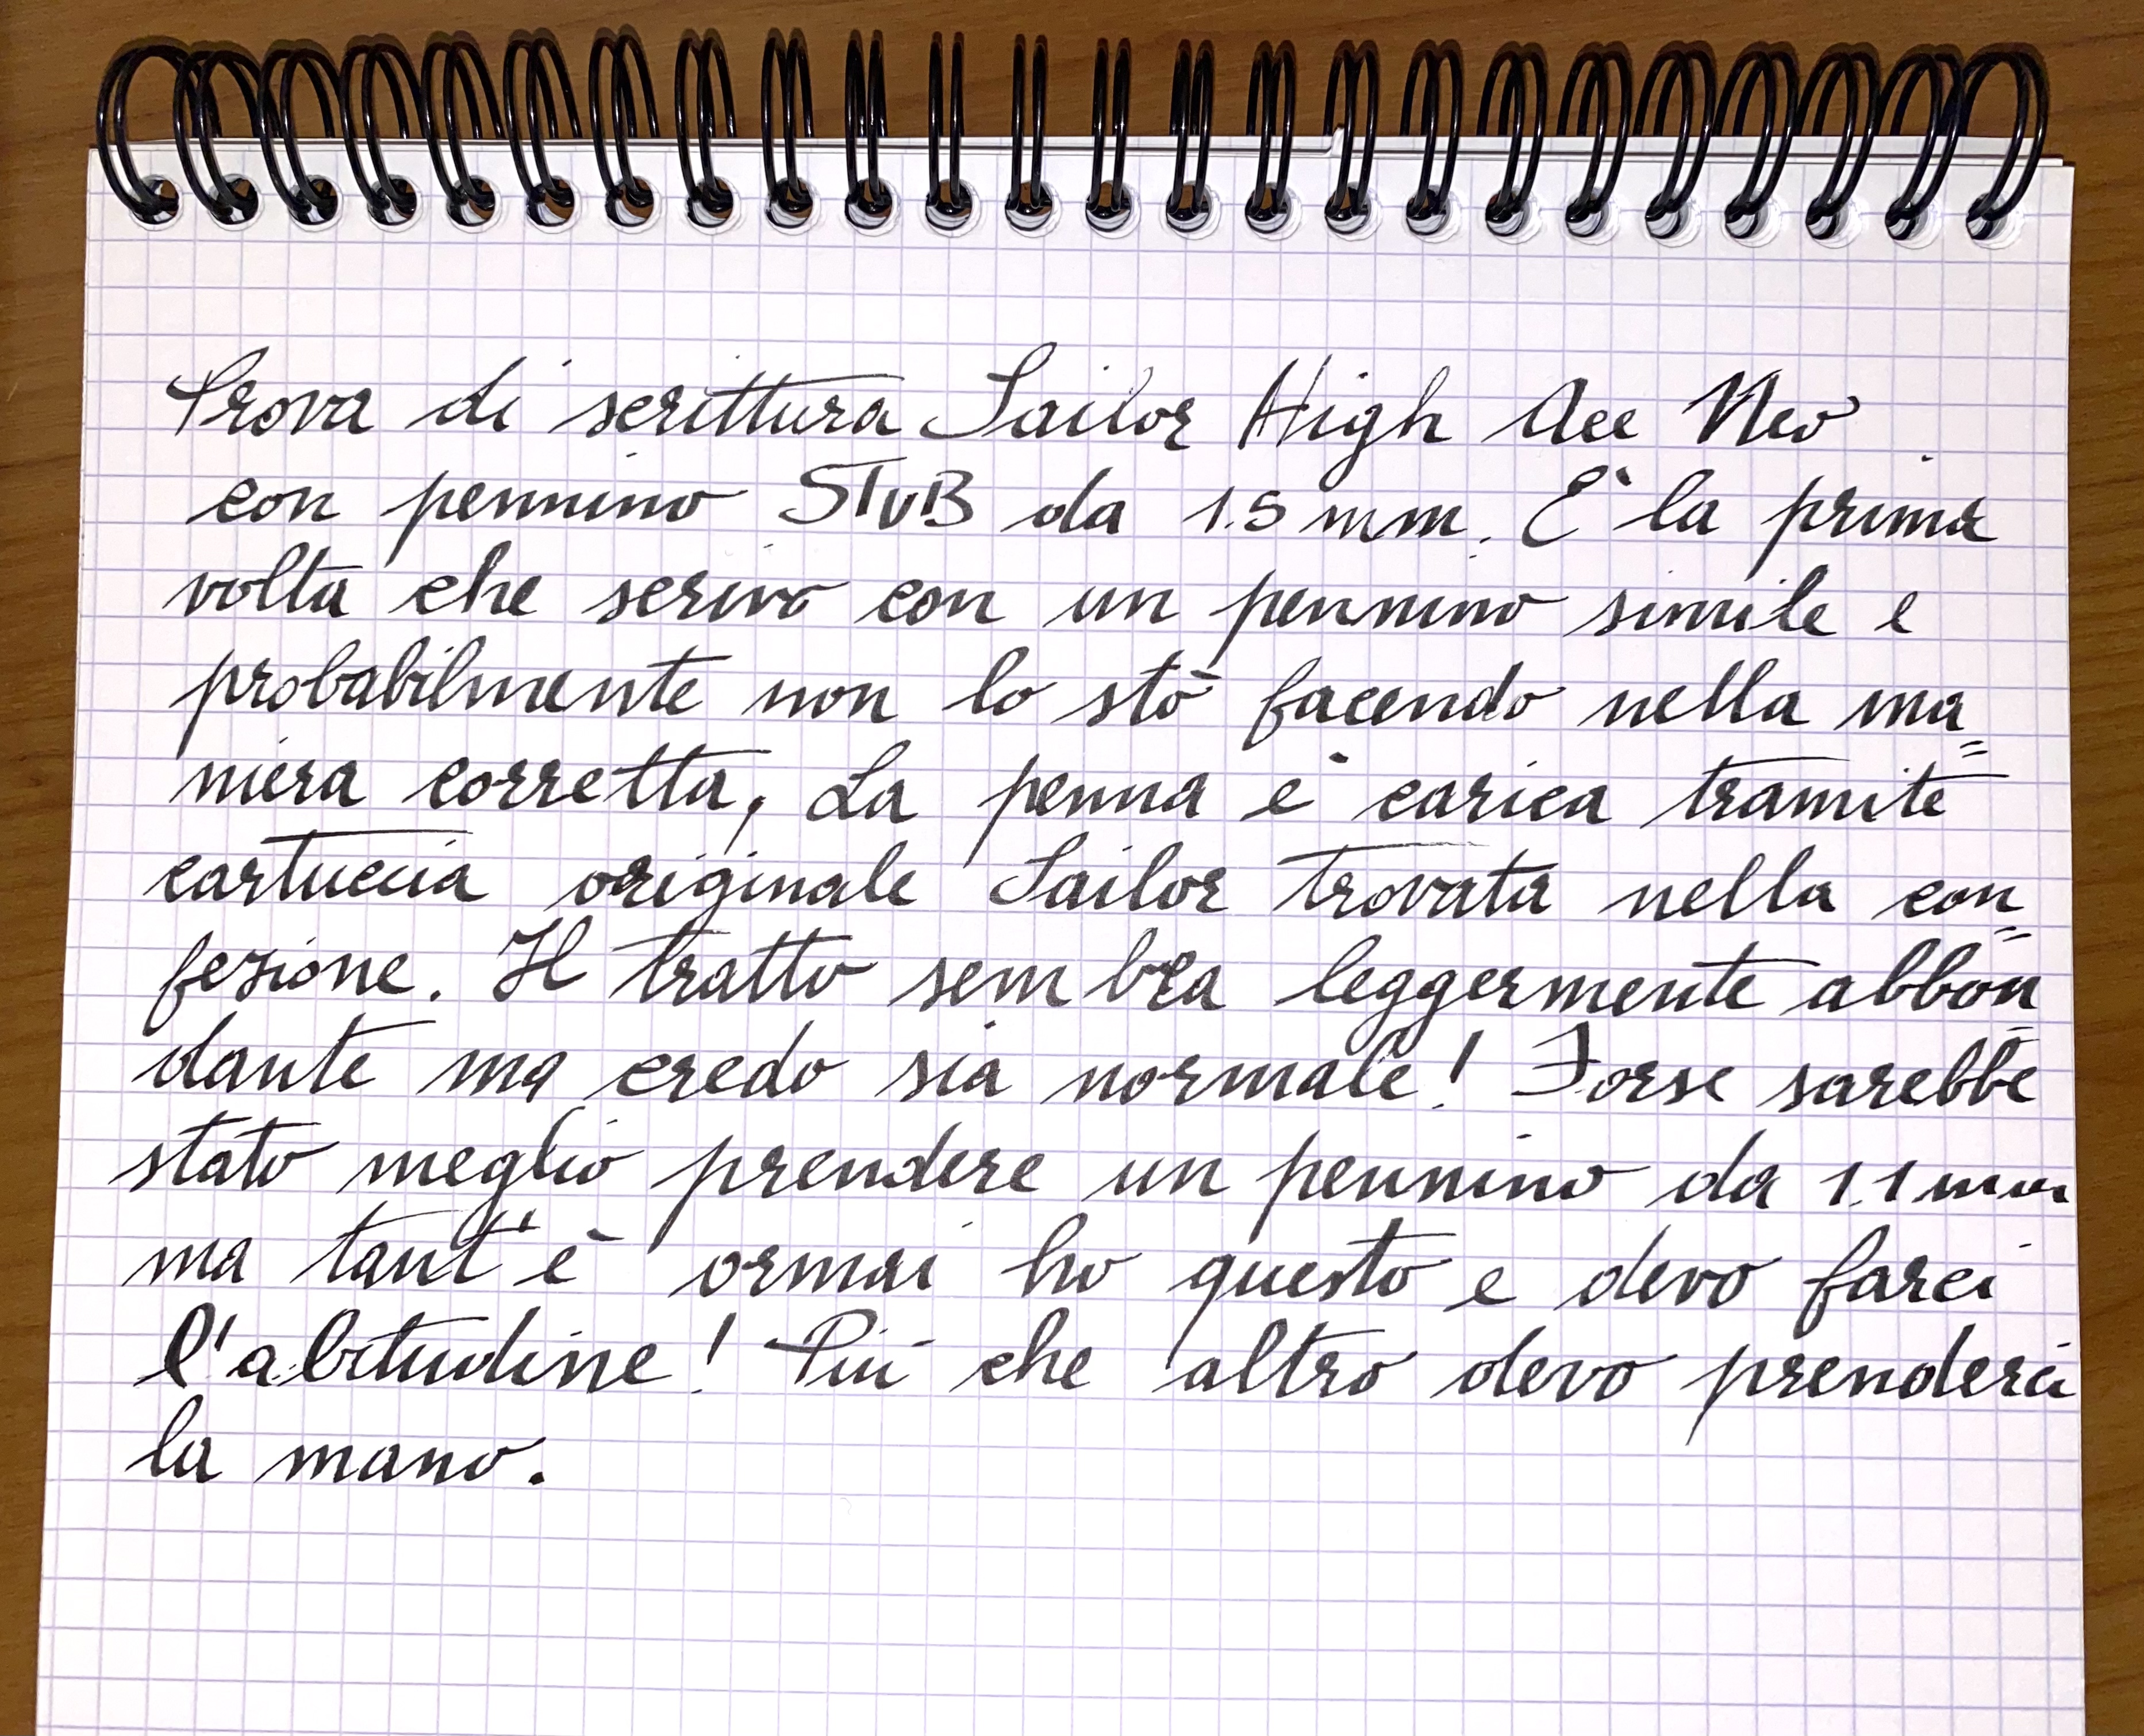 Prova di scrittura Sailor High Ace Neo
con pennino STUB da 1.5 mm. E' la prima
volta che scrivo con un pennino simile e
probabilmente non lo stò facendo nella ma=
niera corretta. La penna è carica tramite
cartuccia originale Sailor trovata nella con=
fezione. Il tratto sembra leggermente abbon=
dante ma credo sia normale! Forse sarebbe
stato meglio prendere un pennino da 1.1 mm
ma tant'è ormai ho questo e devo farci
l'abitudine! Più che altro devo prenderci
la mano.